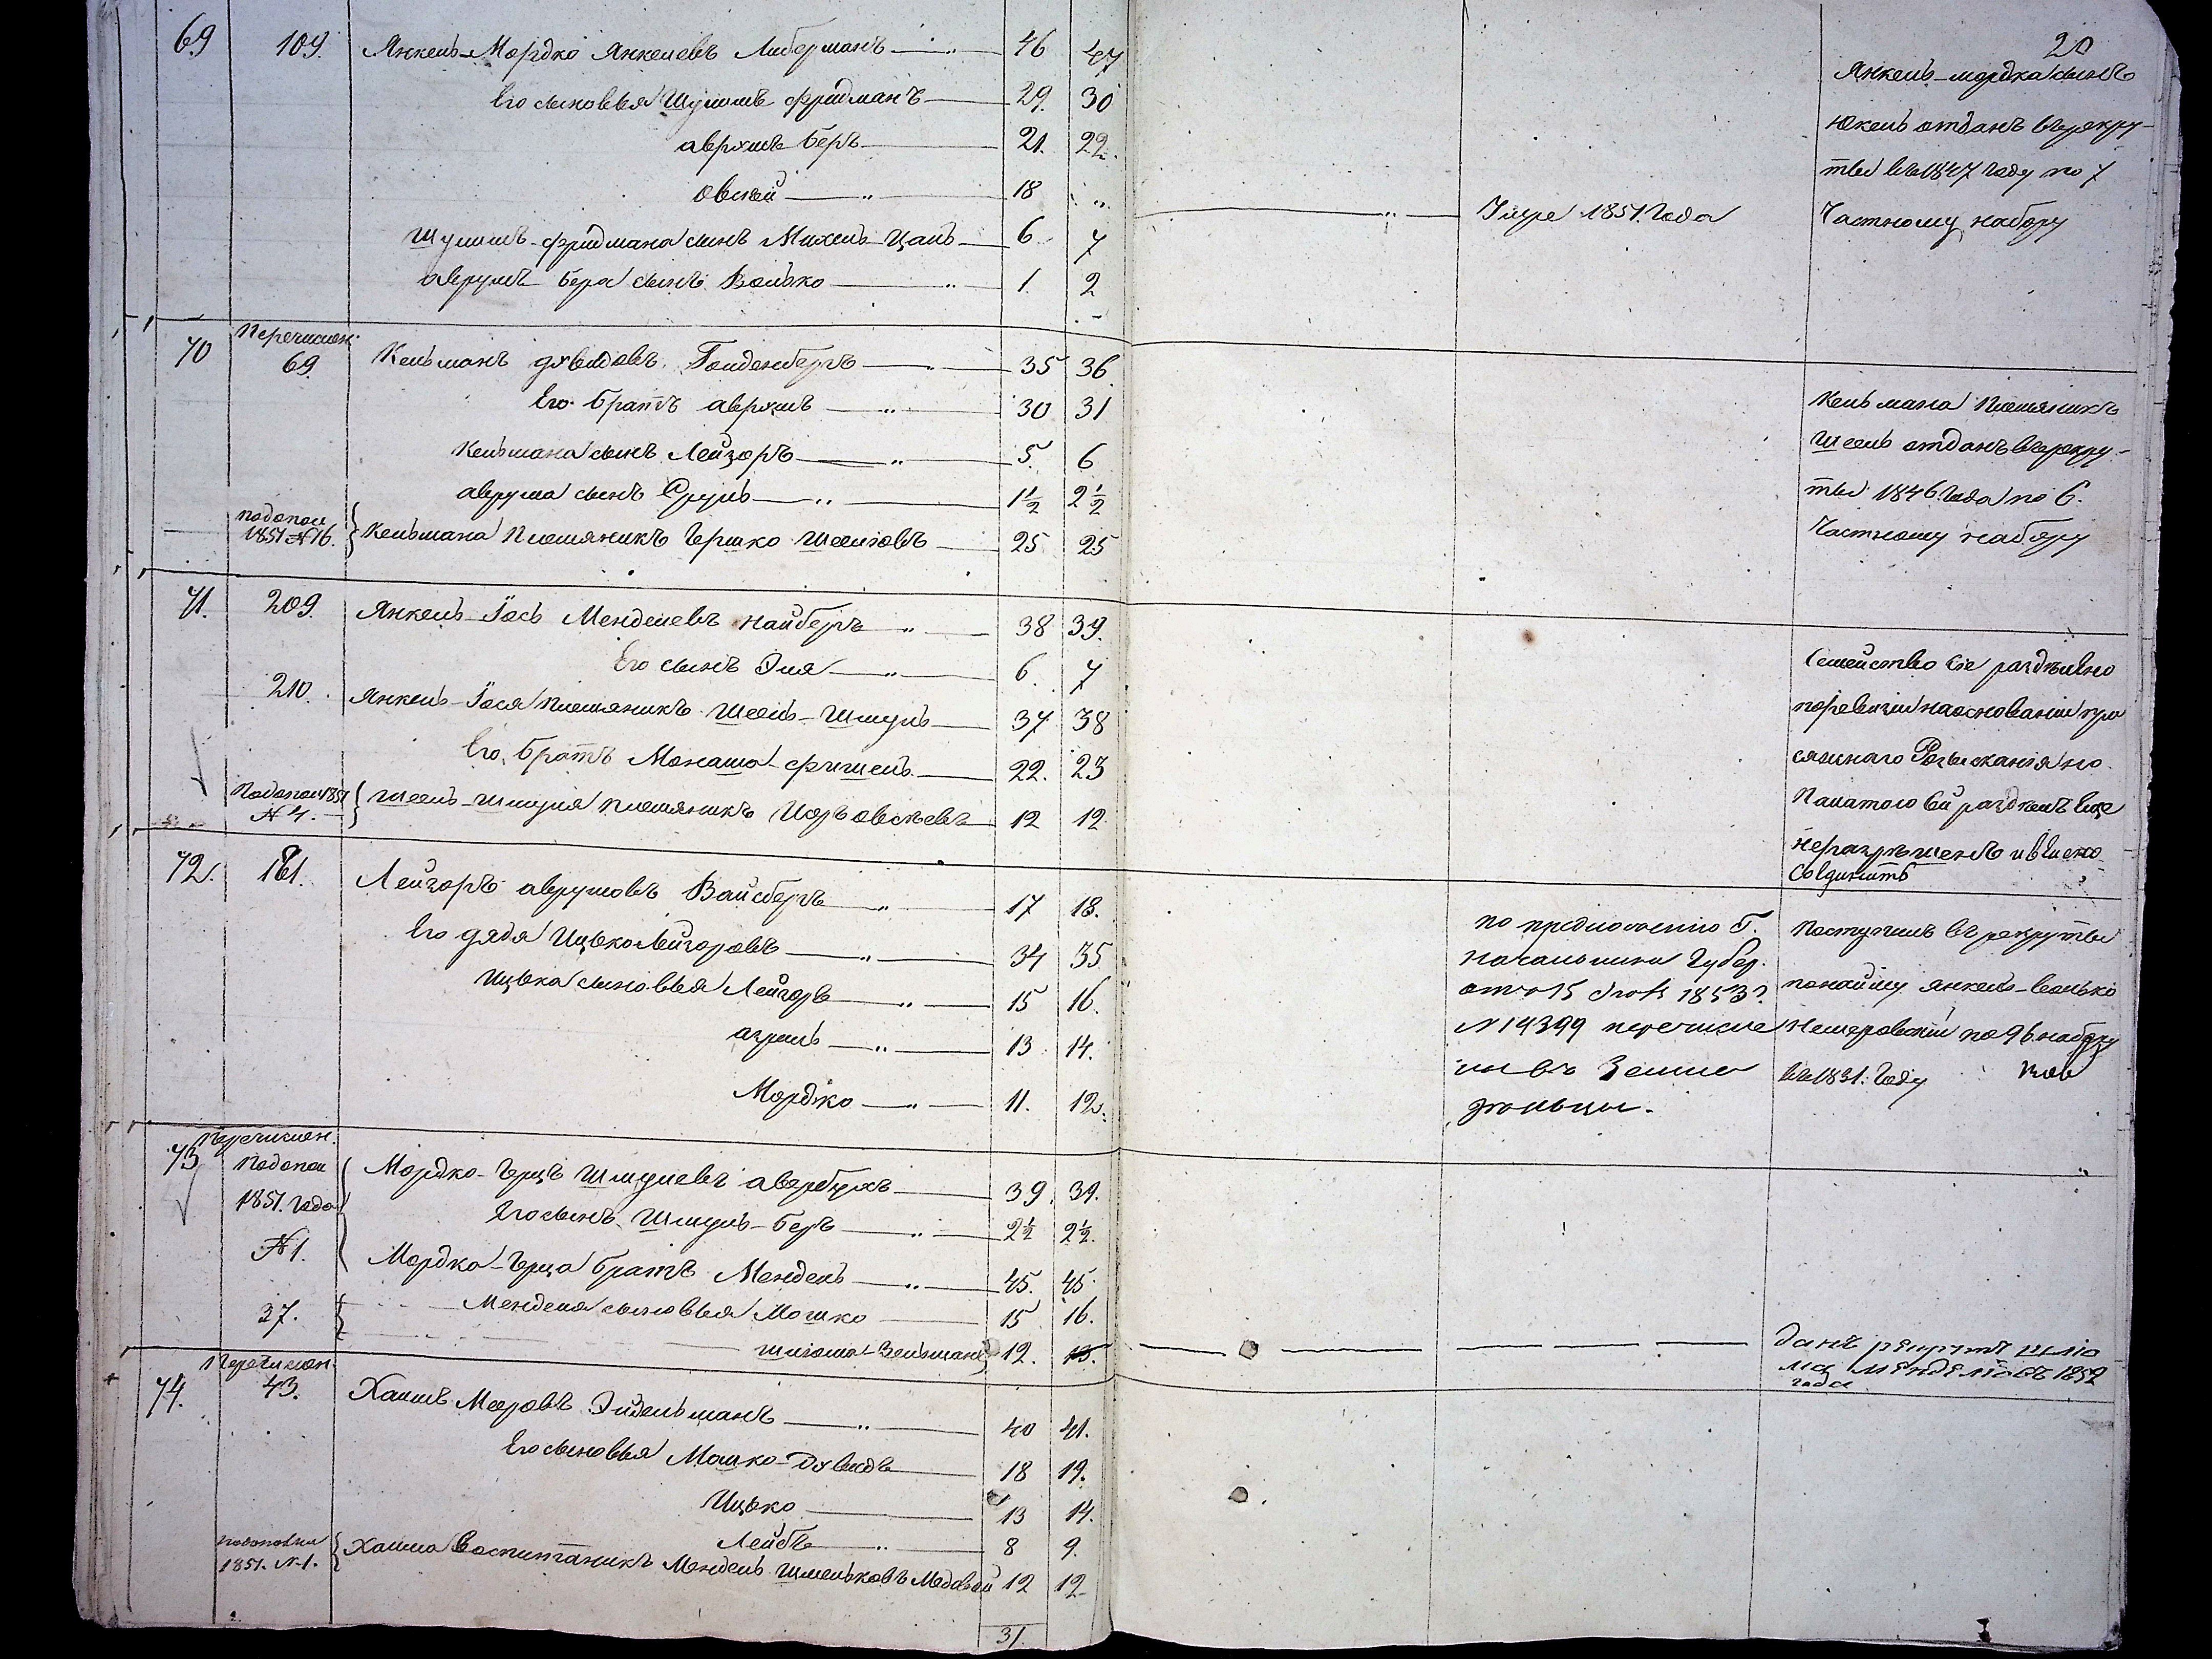 20
69 109. Янкель-Мордко Янкелевъ Либерманъ 46 47
Его сыновья Шулимъ Фридманъ 29. 30
Аврумъ Беръ 21. 22.
Овсѣй 18 „ Умре 1851. Года
Шулимъ-Фридмана сынъ Михель-Цаль 6 7
Аврумъ Бера сынъ Волько 1. 2
Янкель-мордка сынъ
Юкель отданъ въ рекру-
ты въ 1847 году по 7
Частному набору
Перечислен.
70 69. Кельманъ Дувидовъ Голденбергъ 35 36.
Его братъ Аврумъ 30 31
Кельмана сынъ Лейзоръ 5. 6
Аврума сынъ Сруль 1½ 2½
по допол
1851 №16. Кельмана Племяникъ Гершко Шеелювъ 25 25
Кельмана Племяникъ
Шеель отданъ въ рекру-
ты 1846. Года по 6.
Частному набору
71. 209. Янкель-Іось Менделевъ Найберъ 38 39.
Его сынъ Эля 6. 7
210. Янкель-Іося племяникъ Шеель-Шмуль 37 38
Его братъ Монаша-Фишель 22. 23
По допол 1851
№ 4. Шеель-Шмуля племяникъ Иоръ Овсѣевъ 12 12
Семейство Сіе раздѣлено
по ревизіи на основаніи при
сяжнаго Розысканія но
Палатою Сей раздѣлъ Еще
неразрѣшенъ и велено
Соединить
72. 161. Лейзоръ Аврумовъ Вайсбергъ 17 18.
Его дядя Ицько Лейзоровъ 34 35
Ицька сыновья Лейзоръ 15 16.
Азриль 13 14.
Мордко 11. 12.
по предложенію Г.
Начальника Губер.
отъ 15 1853 г.
№ 14399 перечисле
ны въ Земле
дѣльцы.
Поступилъ въ рекруты
по найму Янкель-Волько
Немеровскій по 96. набору
въ 1831. Году
Перечислен.
73 По допол
1851. Года
№ 1. Мордко-Герцъ Шмулевъ Авербухъ 39. 39.
Его сынъ Шмуль-Беръ 2½ 2½.
Мордко-Герца братъ Мендель 45. 45
37. Менделя сыновья Мошко 15 16.
Шлома-Зельманъ 12. 13.
данъ рекрутъ Шліо
ма Менделіовъ 1852
года
Перечислен.
74. 43. Хаимъ Мееровъ Эйдельманъ 40 41.
Его сыновья Мошко-Дувидъ 18 19.
Ицько 13 14.
Лейбъ 8 9.
1851. №1. Хаима Воспитаникъ Мендель Шмельковъ Медовой 12 12
31.